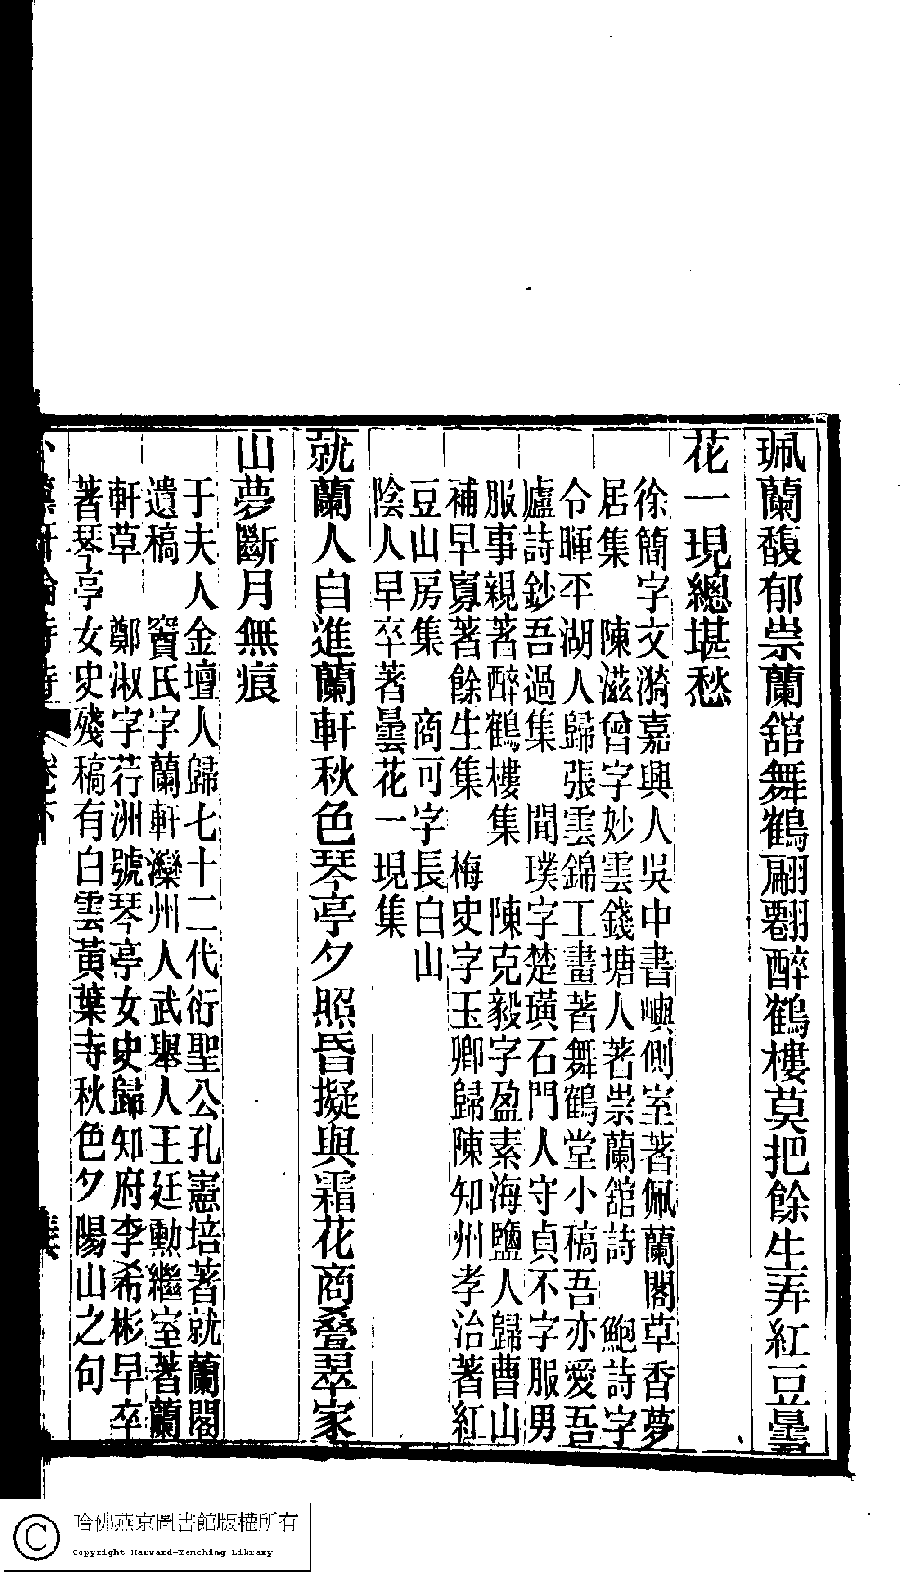 珮蘭馥郁崇蘭舘舞鶴翩翻醉鶴樓莫把餘生弄紅豆曇
花一現總堪愁
徐簡字文漪嘉興人吳中書嶼側室著佩蘭閣草香夢
居集　陳滋曾字妙雲錢塘人著崇蘭舘詩　鮑詩字
令暉平湖人歸張雲錦工畫著舞鶴堂小稿吾亦愛吾
廬詩鈔吾過集　聞璞字楚璜石門人守貞不字服男
服事親著醉鶴樓集　陳克毅字盈素海鹽人歸曹山
補早寡著餘生集　梅史字玉卿歸陳知州孝治著紅
豆山房集　商可字長白山
陰人早卒著曇花一現集
就蘭人自進蘭軒秋色琴亭夕照昏擬與霜花商疊翠家
山夢斷月無痕
于夫人金壇人歸七十二代衍聖公孔憲培著就蘭閣
遺稿　竇氏字蘭軒灤州人武舉人王廷勳繼室著蘭
軒草　鄭淑字荇洲號琴亭女史歸知府李希彬早卒
著琴亭女史殘稿有白雲黃葉寺秋色夕陽山之句
卷下
哈佛燕京圖書館版權所有
Copyright Harvard-Yenching Library